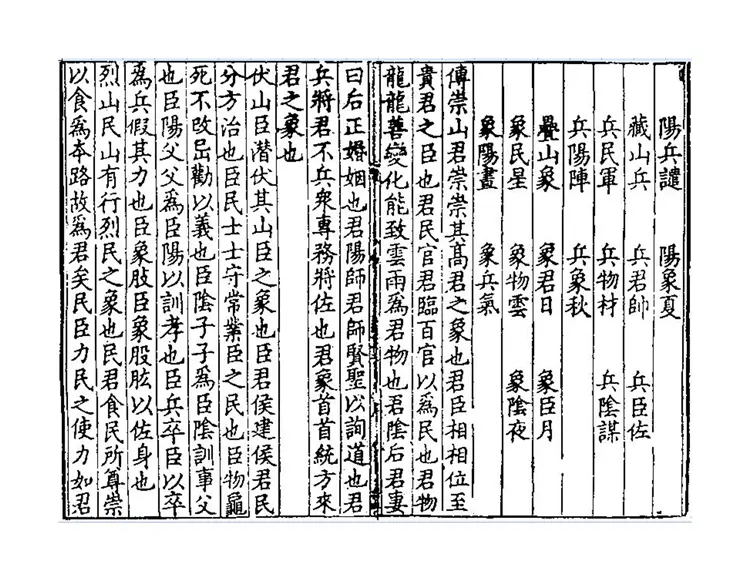 陽兵譴　陽象夏
藏山兵　兵君帥　兵臣佐
兵民軍　兵物材　兵陰謀
兵陽陣　兵象秋
疊山象　象君日　象臣月
象民星　象物雲　象陰夜
象陽晝　象兵氣
傳崇山君崇崇其髙君之象也君臣相相位至
貴君之臣也君民官君臨百官以爲民也君物
龍龍善變化能致雲雨爲君物也君陰后君妻
曰后正婚姻也君陽師君師賢聖以詢道也君
兵將君不兵衆専務將佐也君象首首統方來
君之象也
伏山臣潛伏其山臣之象也臣君侯建侯君民
分方治也臣民士士守常業臣之民也臣物龜
死不改㞐勸以義也臣陰子子爲臣陰訓事父
也臣陽父父爲臣陽以訓孝也臣兵卒臣以卒
爲兵假其力也臣象肢臣象股肱以佐身也
烈山民山有行烈民之象也民君食民所尊崇
以食爲本路故爲君矣民臣力民之使力如君